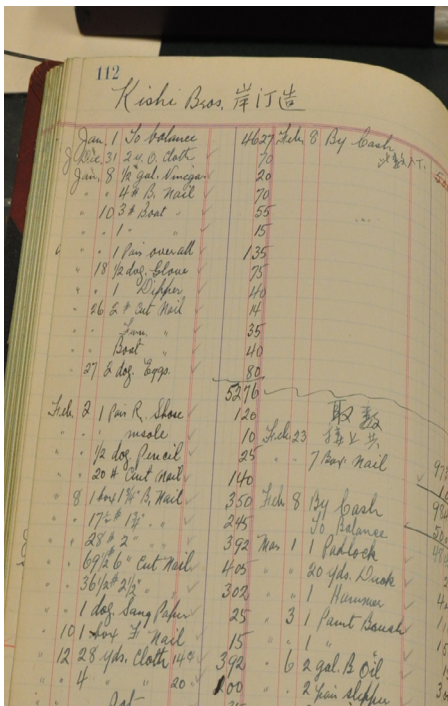 112
Kishi Bros. 岸汀造
Jan. 1 To balance 4627
Dec. 31 2 y. O. Cloth 70
Jan. 8 1/2 gal. Vinegar 20
" " 4# B. Nail 70
" 10 3# Boat " 55
" " 1 " " 15
" " 1 Pair overall 135
" 18 1/2 dog. Glove 75
" " 1 Dipper 40
" 26 2# Cut Nail 14
" " " 35
" " Boat " 40
" 27 2 dog. Eggs. 80
5276
Feb. 2 1 Pair R. Shoe 120
" " insole 10
" " 1/2 dog. Pencil 25
" " 20# Cut Nail 140
" 8 1 box 1 3/4" B. Nail 350
" " 245
" " 28# 2" " 392
" " 69 1/2 6" Cut Nail 405
" " 36 1/2# 2 1/2" " 302
" " 1 dog. Sang Paper 25
" 10 1 box F. Nail 15
" 12 28 yds. Cloth 14¢ 392
" " 4 " " 20
Feb. 8 By Cash
Feb. 23
" " 7 Box Nail
Feb. 8 By Cash
To Balance
Mar 1 1 Padlock
" " 20 yds. Duck
" " 1 Hammer
" 3 1 Paint Brush
" " 1 "
" 6 2 gal. B. Oil
" " 2 pair slipper